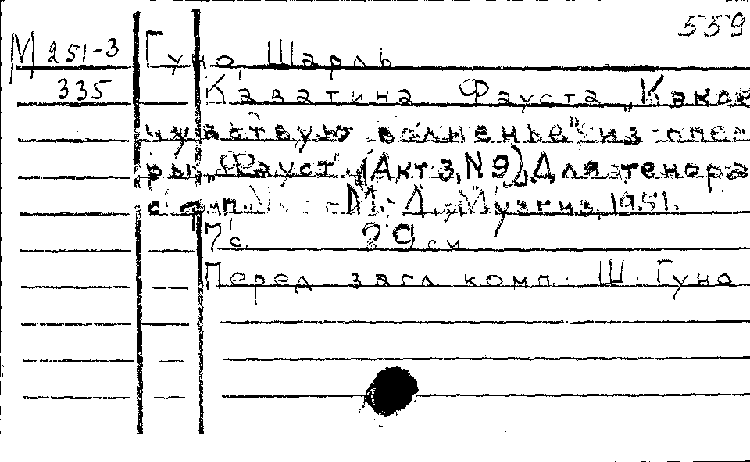 559
М 251-3 Гуно, Шарль
335 Каватина Фауста "Какое
чувствую волненье" из опе-
ры "Фауст". (Акт 3, N 9). Для тенора
с ф-п. М.-Л., Музгиз, 1951.
7 с. 29 см
Перед загл. комп.: Ш. Гуно